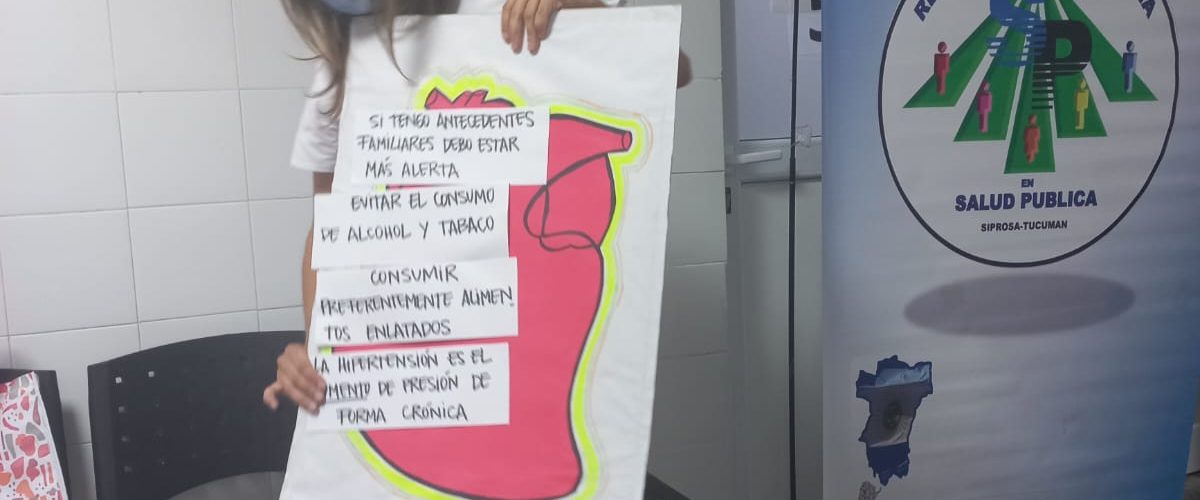 SI TENGO ANTECEDENTES
FAMILIARES DEBO ESTAR
MÁS ALERTA
EVITAR EL CONSUMO
DE ALCOHOL Y TABACO
CONSUMIR
PREFERENTEMENTE ALIMEN
TOS ENLATADOS
LA HIPERTENSIÓN ES EL
MENTO DE PRESIÓN DE
FORMA CRÓNICA
SP
EN
SALUD PUBLICA
SIPROSA-TUCUMAN